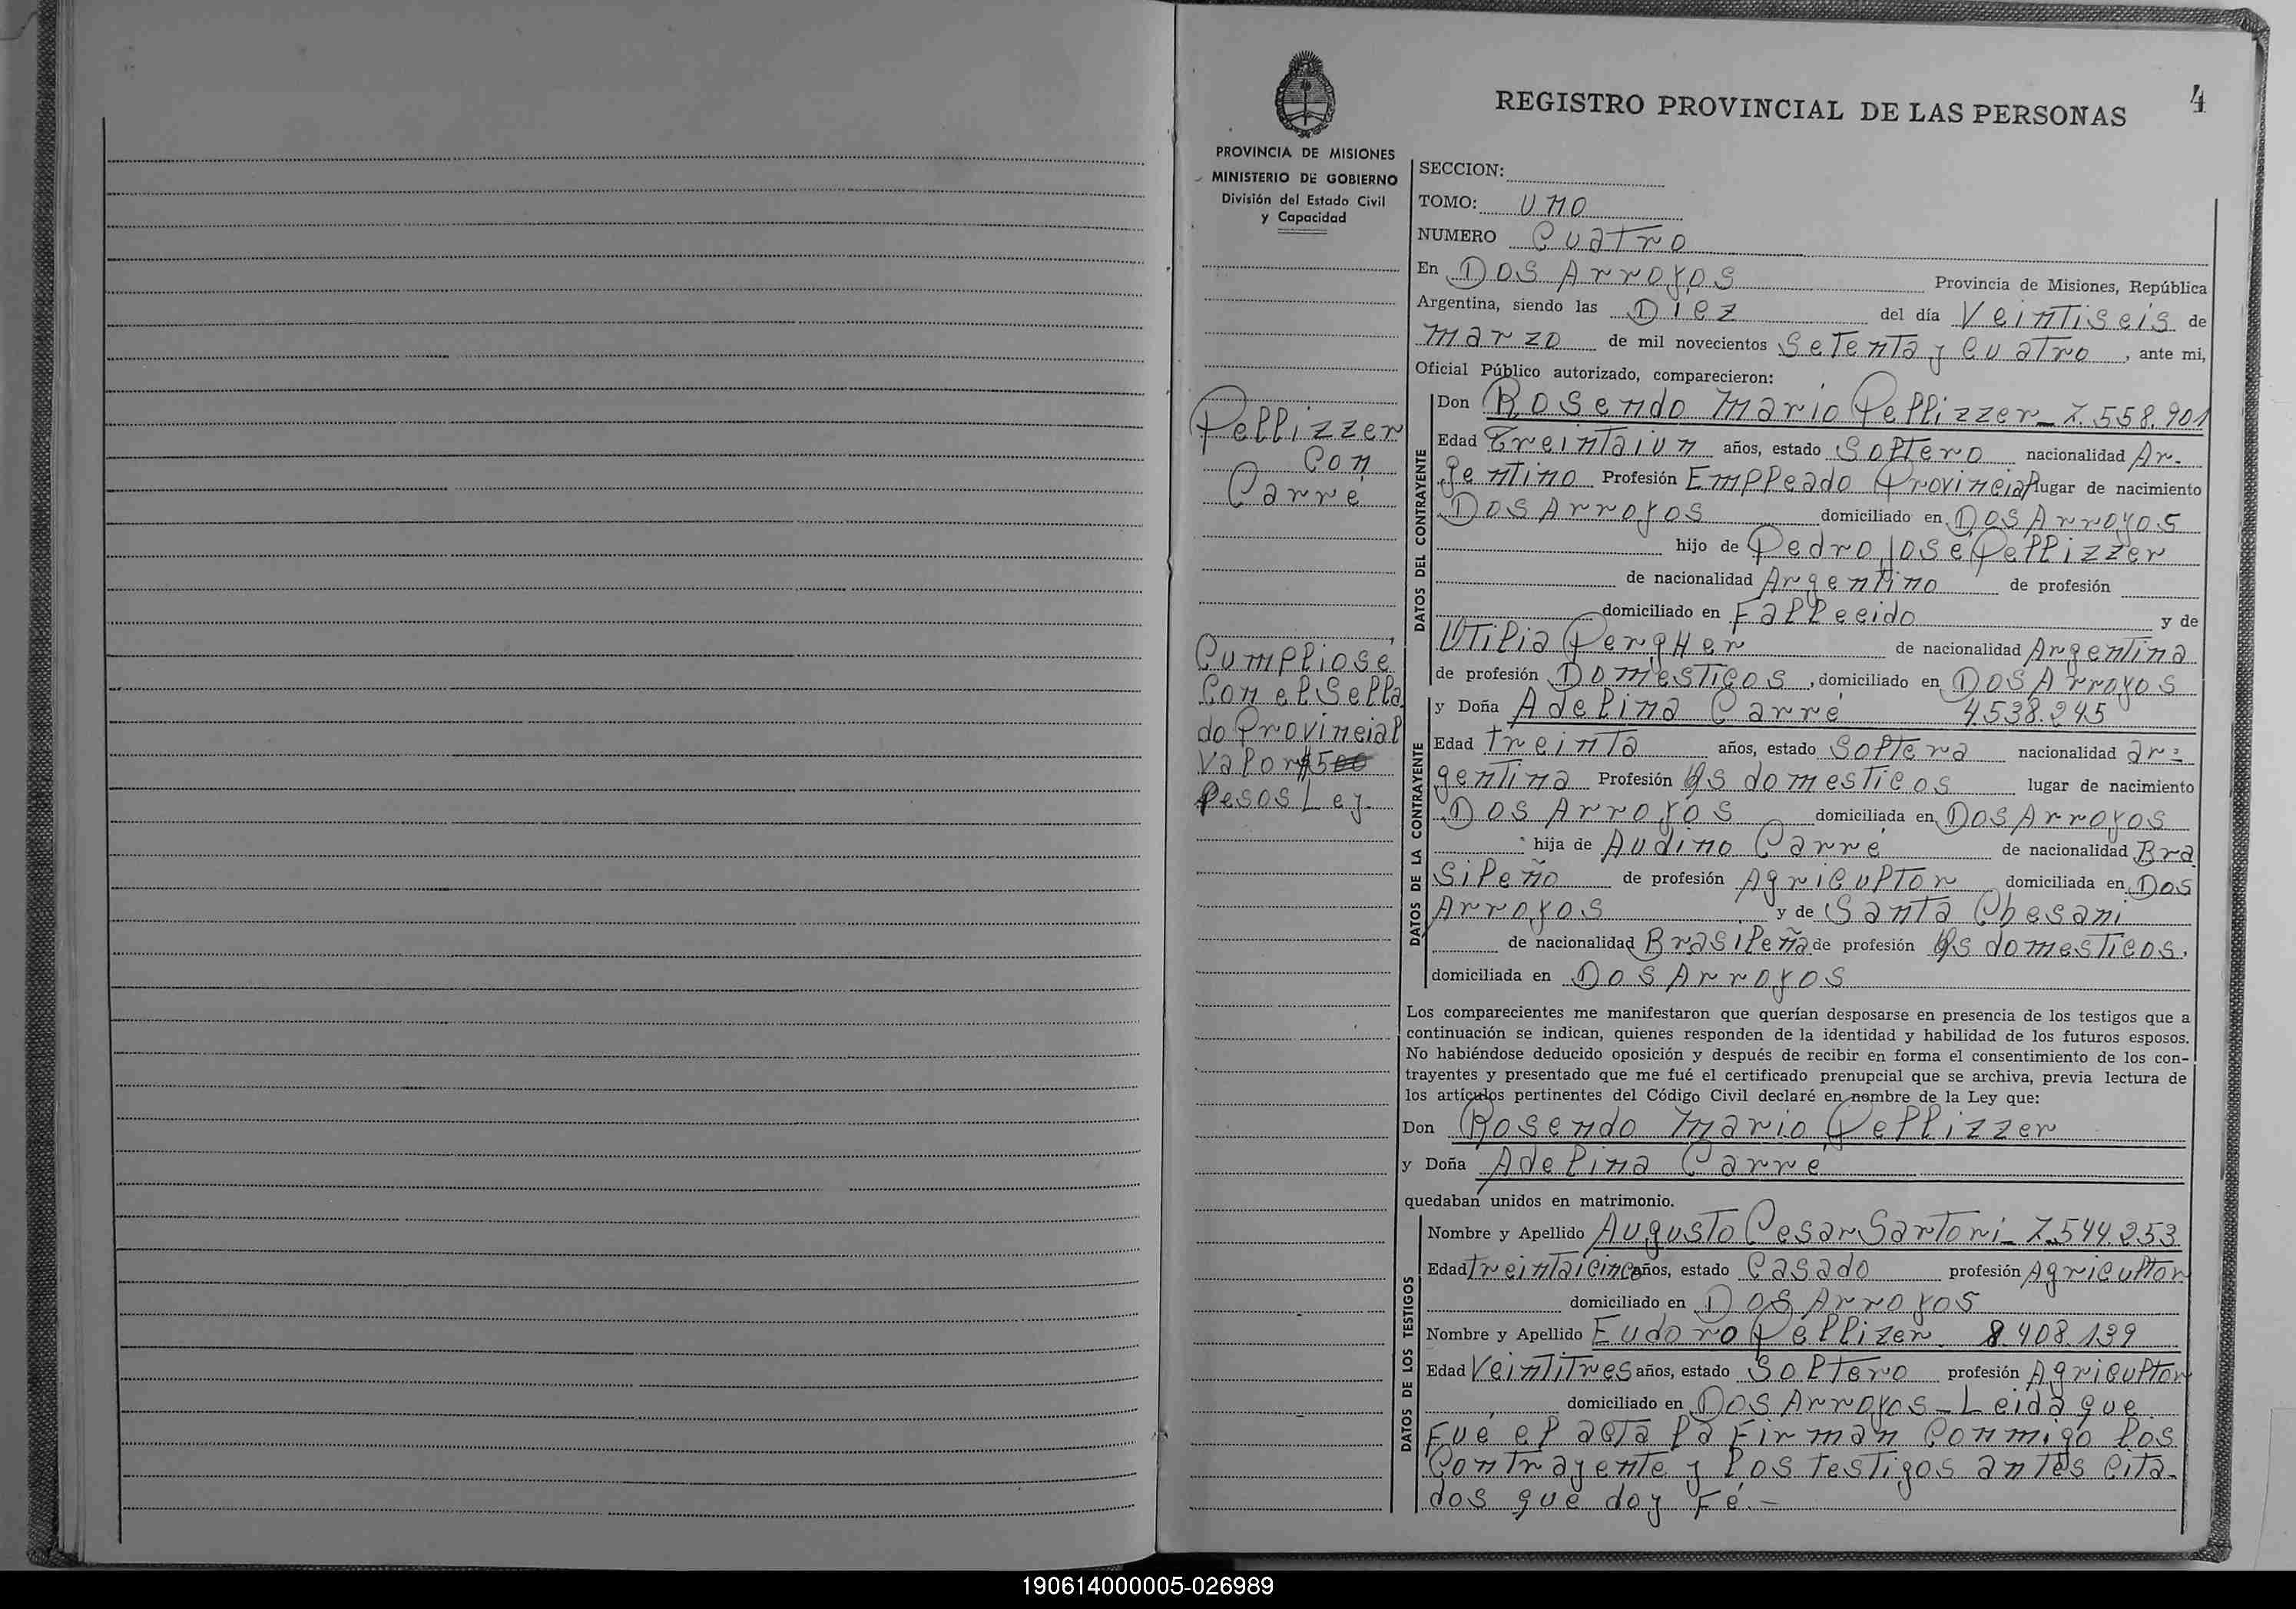 4
REGISTRO PROVINCIAL DE LAS PERSONAS
PROVINCIA DE MISIONES
MINISTERIO DE GOBIERNO
División del Estado Civil
y Capacidad
SECCION:
TOMO: uno
NUMERO Cuatro
En Dos Arroyos Provincia de Misiones, República
Argentina, siendo las Diez del día Veintiseis de
marzo de mil novecientos Setenta y Cuatro, ante mi,
Oficial Público autorizado, comparecieron:
Pellizzer
Con
Carré
Cumpliose
Con el Sella
do Provincial
Valor $ 500
Pesos Ley.
DATOS DEL CONTRAYENTE
Don Rosendo Mario Pellizzer - 7.558.901
Edad Treintaiun años, estado Soltero nacionalidad Ar-
gentino Profesión Empleado Provincial lugar de nacimiento
Dos Arroyos domiciliado en Dos Arroyos
hijo de Pedro José Pellizzer
de nacionalidad Argentino de profesión
domiciliado en Fallecido y de
Utilia Pergher de nacionalidad Argentina
de profesión Domesticos, domiciliado en Dos Arroyos
DATOS DE LA CONTRAYENTE
y Doña Adelina Carré 4538.245
Edad treinta años, estado Soltera nacionalidad ar=
gentina Profesión Qs domesticos lugar de nacimiento
Dos Arroyos domiciliada en Dos Arroyos
hija de Audino Carré de nacionalidad Bra
Sileño de profesión Agricultor domiciliada en Dos
Arroyos y de Santa Chesani
de nacionalidad Brasileña de profesión Qs domesticos,
domiciliada en Dos Arroyos
Los comparecientes me manifestaron que querían desposarse en presencia de los testigos que a
continuación se indican, quienes responden de la identidad y habilidad de los futuros esposos.
No habiéndose deducido oposición y después de recibir en forma el consentimiento de los con-
trayentes y presentado que me fué el certificado prenupcial que se archiva, previa lectura de
los artículos pertinentes del Código Civil declaré en nombre de la Ley que:
Don Rosendo Mario Pellizzer
y Doña Adelina Carré
quedaban unidos en matrimonio.
DATOS DE LOS TESTIGOS
Nombre y Apellido Augusto Cesar Sartori - 7.544.253
Edad treintaicinco años, estado Casado profesión Agricultor
domiciliado en Dos Arroyos
Nombre y Apellido Eudoro Pellizer 8.408.139
Edad Veintitres años, estado Soltero profesión Agricultor
domiciliado en Dos Arroyos - Leida que
Fué el acta la Firman Conmigo los
Contrayente y los testigos antes cita-
dos que doy Fé. -
190614000005-026989